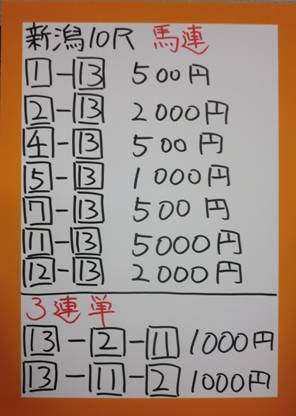 新潟10R 馬連
1-13 500円
2-13 2000円
4-13 500円
5-13 1000円
7-13 500円
11-13 5000円
12-13 2000円
3連単
13-2-11 1000円
13-11-2 1000円